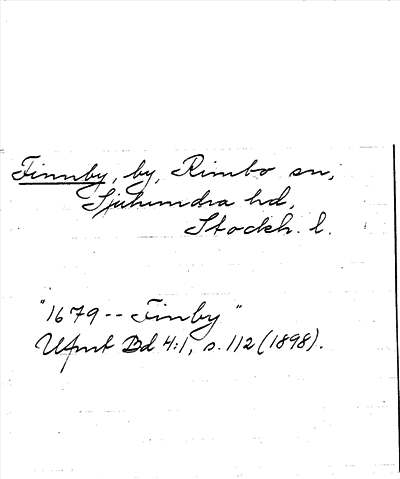 Finnby, by, Rimbo sn,
Sjuhundra hd,
Stockh. l.
"1679 -- Finby"
Ufmt Bd 4:1, s. 112 (1898).